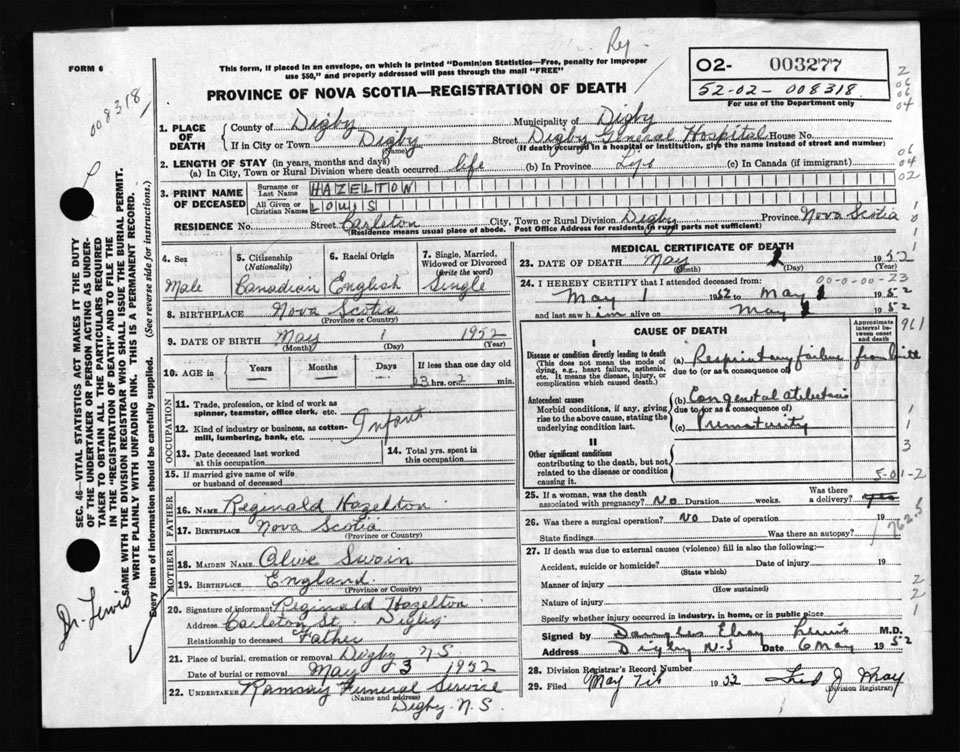 Rey.
FORM 6
This form, if placed in an envelope, on which is printed "Dominion Statistics—Free, penalty for improper
use $50," and properly addressed will pass through the mail "FREE"
PROVINCE OF NOVA SCOTIA—REGISTRATION OF DEATH
02- 003277
52-02-008318
For use of the Department only
008318
1. PLACE OF DEATH
County of Digby Municipality of Digby
If in City or Town Digby (Name) Street Digby General Hospital House No.
(If death occurred in a hospital or institution, give the name instead of street and number)
2. LENGTH OF STAY (in years, months and days)
(a) In City, Town or Rural Division where death occurred life (b) In Province Life (c) In Canada (if immigrant)
3. PRINT NAME OF DECEASED
Surname or Last Name HAZELTON
All Given or Christian Names LOUIS
RESIDENCE No. Street Carleton City, Town or Rural Division Digby Province Nova Scotia
(Residence means usual place of abode. Post Office Address for residents in rural parts not sufficient)
4. Sex Male
5. Citizenship (Nationality) Canadian
6. Racial Origin English
7. Single, Married, Widowed or Divorced (write the word) Single
8. BIRTHPLACE Nova Scotia
(Province or Country)
9. DATE OF BIRTH May 1 1952
(Month) (Day) (Year)
10. AGE in Years Months Days If less than one day old
23 hrs. or 2 min.
OCCUPATION
11. Trade, profession, or kind of work as
spinner, teamster, office clerk, etc.
12. Kind of industry or business, as cotton-
mill, lumbering, bank, etc.
Infant
13. Date deceased last worked
at this occupation
14. Total yrs. spent in
this occupation
15. If married give name of wife
or husband of deceased
FATHER
16. NAME Reginald Hazelton
17. BIRTHPLACE Nova Scotia
(Province or Country)
MOTHER
18. MAIDEN NAME Olive Swain
19. BIRTHPLACE England
(Province or Country)
20. Signature of informant Reginald Hazelton
Address Carleton St. Digby
Relationship to deceased Father
21. Place of burial, cremation or removal Digby NS
Date of burial or removal May 3 1952
22. UNDERTAKER Ramsay Funeral Service
(Name and address)
Digby N.S.
MEDICAL CERTIFICATE OF DEATH
23. DATE OF DEATH May 1952
(Month) (Day) (Year)
24. I HEREBY CERTIFY that I attended deceased from: 00-0-00-23
May 1 1952 to May 1952
and last saw him alive on May 1952
CAUSE OF DEATH
Approximate interval between onset and death
961
I
Disease or condition directly leading to death
(This does not mean the mode of
dying, e.g., heart failure, asthenia,
etc. It means the disease, injury, or
complication which caused death.)
(a) Respiratory failure from birth
due to (or as a consequence of)
Antecedent causes
Morbid conditions, if any, giving
rise to the above cause, stating the
underlying condition last.
(b) Congenital atelectasis
due to (or as a consequence of)
(c) Prematurity
II
Other significant conditions
contributing to the death, but not
related to the disease or condition
causing it.
5-01-2
25. If a woman, was the death
associated with pregnancy? No Duration weeks. Was there a delivery? yes
26. Was there a surgical operation? No Date of operation 19
State findings Was there an autopsy?
762.5
27. If death was due to external causes (violence) fill in also the following:—
Accident, suicide or homicide? Date of injury 19
(State which)
Manner of injury
(How sustained)
Nature of injury
Specify whether injury occurred in industry, in home, or in public place
Signed by Douglas Lewis M.D.
Address Digby N-S Date 6 May 1952
28. Division Registrar's Record Number
29. Filed May 7th 1952
(Division Registrar)
SEC. 46—VITAL STATISTICS ACT MAKES IT THE DUTY
OF THE UNDERTAKER OR PERSON ACTING AS UNDER-
TAKER TO OBTAIN ALL THE PARTICULARS REQUIRED
IN THE "REGISTRATION OF DEATH" AND TO FILE THE
SAME WITH THE DIVISION REGISTRAR WHO SHALL ISSUE THE BURIAL PERMIT.
WRITE PLAINLY WITH UNFADING INK. THIS IS A PERMANENT RECORD.
Every item of information should be carefully supplied. (See reverse side for instructions.)
Dr. Lewis